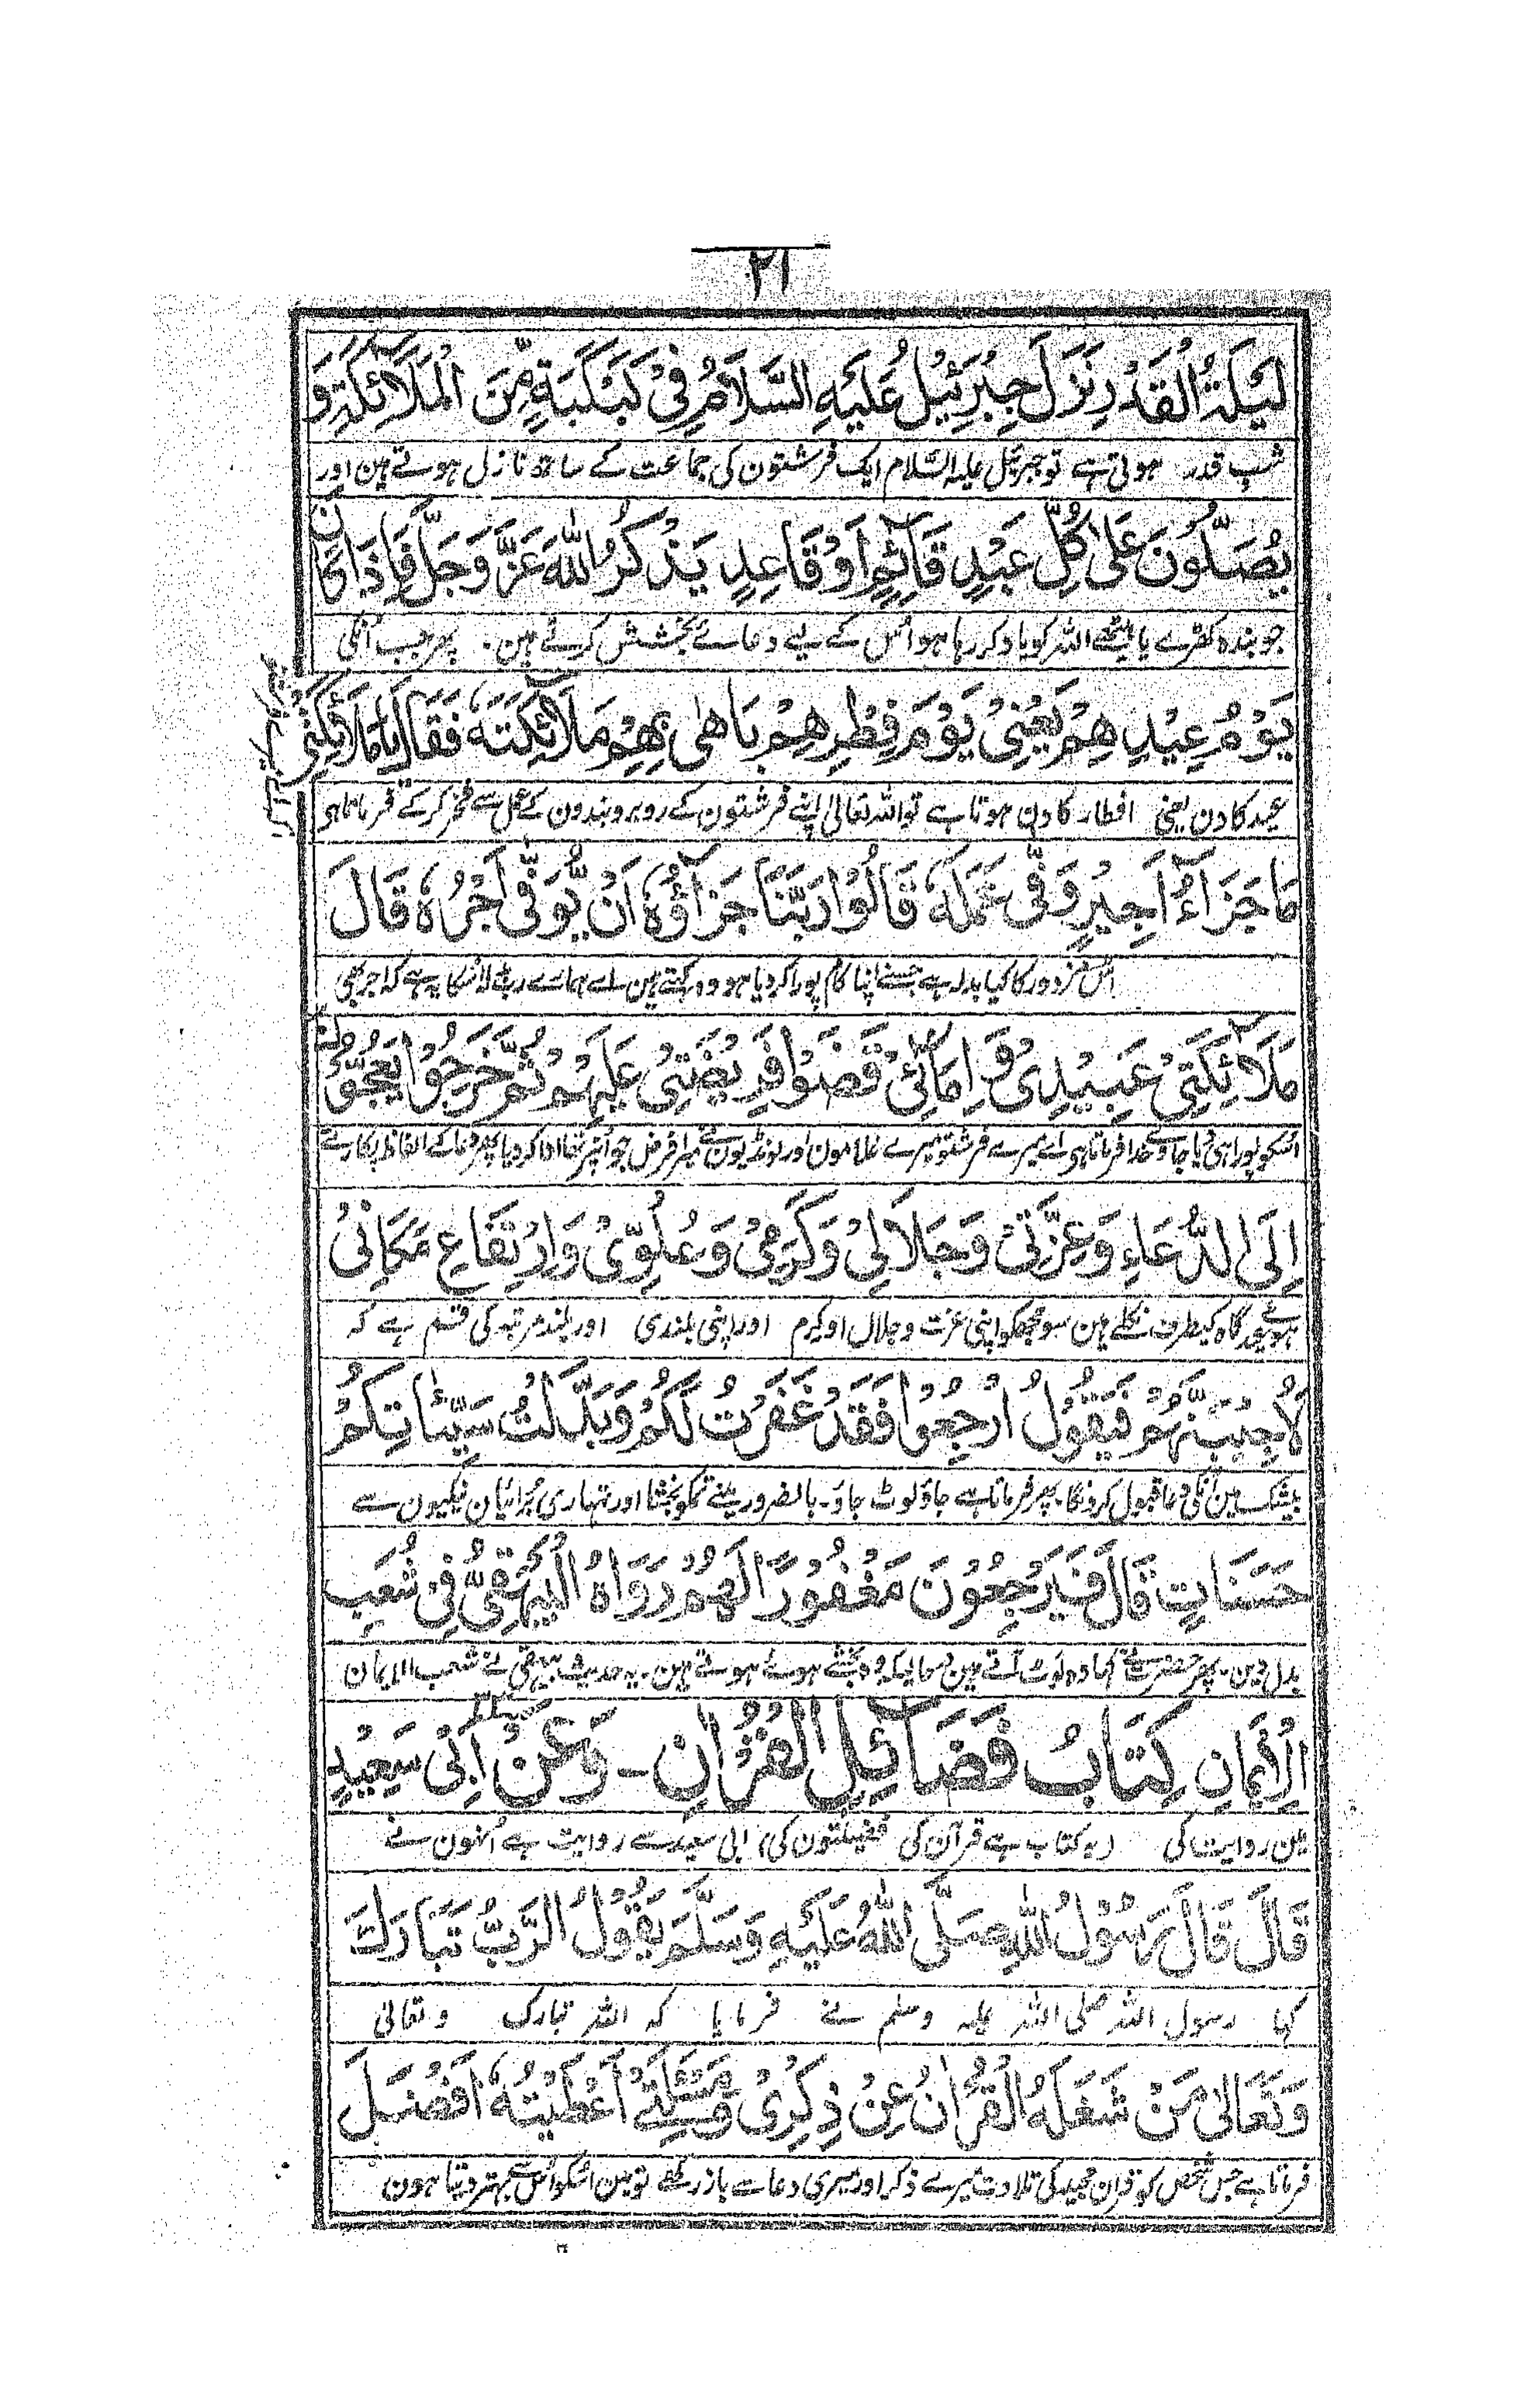 ٢١
لَيْلَةُ الْقَدْرِ نَزَلَ جِبْرَئِيْلُ عَلَيْهِ السَّلَامُ فِيْ كَبْكَبَةٍ مِّنَ الْمَلَآئِكَةِ وَ
شب قدر ہوتی ہے تو جبرئیل علیہ السلام ایک فرشتون کی جماعت کے ساتھ نازل ہوتے ہین اور
يُصَلُّوْنَ عَلٰى كُلِّ عَبْدٍ قَآئِمٍ اَوْ قَاعِدٍ يَذْكُرُ اللّٰهَ عَزَّ وَجَلَّ فَاِذَا كَانَ
جو بندہ کھڑے یا بیٹھے اللہ کو یاد کر رہا ہو اُس کے لیے دعائے بخشش کرتے ہین۔ پھر جب اُنکی
يَوْمُ عِيْدِهِمْ يَعْنِيْ يَوْمَ فِطْرِهِمْ بَاهٰى بِهِمْ مَلَآئِكَتَهٗ فَقَالَ يَا مَلَآئِكَتِيْ
عید کا دن یعنی افطار کا دن ہوتا ہے تو اللہ تعالیٰ اپنے فرشتون کے روبرو بندون کے عمل سے فخر کر کے فرماتا ہی
مَا جَزَآءُ اَجِيْرٍ وَفّٰى عَمَلَهٗ قَالُوْا رَبَّنَا جَزَآؤُهٗ اَنْ يُّوَفّٰى اَجْرُهٗ قَالَ
اُس مزدور کا کیا بدلہ ہے جسنے اپنا کام پورا کر دیا ہو وہ کہتے ہین اے ہمارے رب بدلا اُسکا یہ ہے کہ اجر بھی
مَلَآئِكَتِيْ عَبِيْدِيْ وَ اِمَآئِيْ قَضَوْا فَرِيْضَتِيْ عَلَيْهِمْ ثُمَّ خَرَجُوْا يَعُجُّوْنَ
اُسکو پورا ہی دیا جاوے خدا فرماتا ہی اے میرے فرشتو میرے غلامون اور لونڈیون نے میرا فرض جو اُنپر تھا ادا کر دیا پھر دعا کے الفاظ پکارتے
اِلَى الدُّعَاءِ وَعِزَّتِيْ وَجَلَالِيْ وَكَرَمِيْ وَعُلُوِّيْ وَارْتِفَاعِ مَكَانِيْ
ہوئے عیدگاہ کیطرف نکلے ہین سو مجھکو اپنی عزت و جلال اور کرم اور اپنی بلندی اور بلند مرتبہ کی قسم ہے کہ
لَاُجِيْبَنَّهُمْ فَيَقُوْلُ ارْجِعُوْا فَقَدْ غَفَرْتُ لَكُمْ وَبَدَّلْتُ سَيِّئَاتِكُمْ
بیشک مین اُنکی دعا قبول کرونگا۔ پھر فرماتا ہے جاؤ لوٹ جاؤ۔ بالضرور مینے تمکو بخشا اور تمہاری بُرائیان نیکیون سے
حَسَنَاتٍ قَالَ فَيَرْجِعُوْنَ مَغْفُوْرًا لَهُمْ رَوَاهُ الْبَيْهَقِيُّ فِيْ شُعَبِ
بدل دین۔ پھر حضرت نے کہا وہ لوٹ آتے ہین درحالیکہ وہ بخشے ہوئے ہوتے ہین۔ یہ حدیث بیہقی نے شعب الایمان
الْاِيْمَانِ كِتَابُ فَضَآئِلِ الْقُرْاٰنِ ۔ وَعَنْ اَبِيْ سَعِيْدٍ
مین روایت کی (یہ کتاب ہے قرآن کی فضیلتون کی) ابی سعید سے روایت ہے اُنہون نے
قَالَ قَالَ رَسُوْلُ اللّٰهِ صَلَّى اللّٰهُ عَلَيْهِ وَسَلَّمَ يَقُوْلُ الرَّبُّ تَبَارَكَ
کہا رسول اللہ صلی اللہ علیہ وسلم نے فرمایا کہ اللہ تبارک و تعالیٰ
وَتَعَالٰى مَنْ شَغَلَهُ الْقُرْاٰنُ عَنْ ذِكْرِيْ وَمَسْئَلَتِيْ اَعْطَيْتُهٗ اَفْضَلَ
فرماتا ہے جس شخص کو قرآن مجید کی تلاوت میرے ذکر اور میری دعا سے باز رکھے تو مین اُسکو اُس سے بہتر دیتا ہون